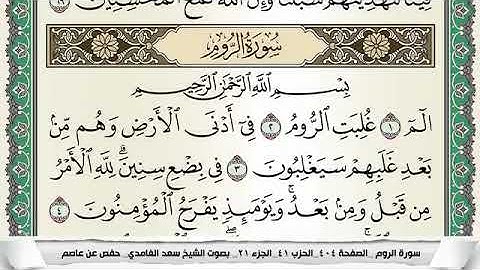 فِينَا لَنَهْدِيَنَّهُمْ سُبُلَنَا وَإِنَّ اللَّهَ لَمَعَ الْمُحْسِنِينَ ٦٩
سُورَةُ الرُّومِ
بِسْمِ اللَّهِ الرَّحْمَٰنِ الرَّحِيمِ
الٓمٓ ١ غُلِبَتِ الرُّومُ ٢ فِىٓ أَدْنَى الْأَرْضِ وَهُم مِّنۢ
بَعْدِ غَلَبِهِمْ سَيَغْلِبُونَ ٣ فِى بِضْعِ سِنِينَۗ لِلَّهِ الْأَمْرُ
مِن قَبْلُ وَمِنۢ بَعْدُۚ وَيَوْمَئِذٍ يَفْرَحُ الْمُؤْمِنُونَ ٤
سورة الروم _ الصفحة ٤٠٤ _ الحزب ٤١ _ الجزء ٢١ _ بصوت الشيخ سعد الغامدي _ حفص عن عاصم